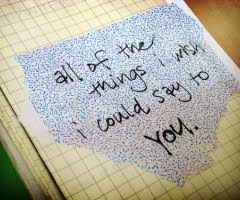 all of the
things i wish
i could say to
you.